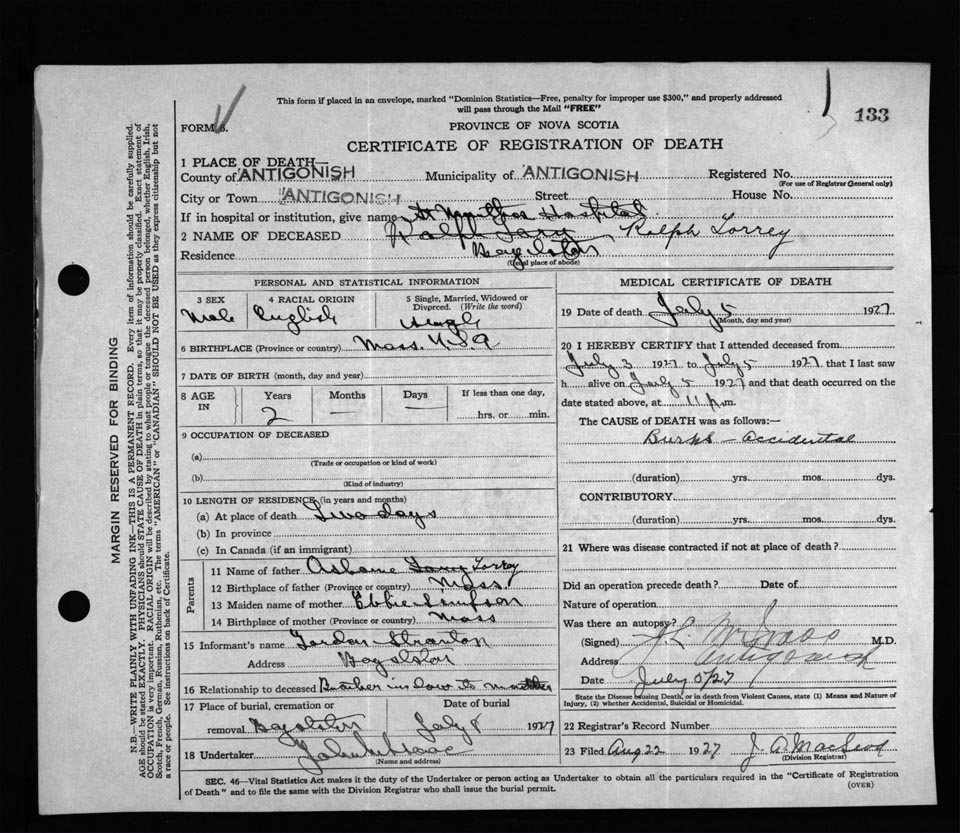 This form if placed in an envelope, marked "Dominion Statistics—Free, penalty for improper use $300," and properly addressed
will pass through the Mail "FREE"
133
FORM 6.
PROVINCE OF NOVA SCOTIA
CERTIFICATE OF REGISTRATION OF DEATH
1 PLACE OF DEATH—
County of ANTIGONISH Municipality of ANTIGONISH Registered No.
(For use of Registrar General only)
City or Town ANTIGONISH Street House No.
If in hospital or institution, give name St Marthas Hospital
2 NAME OF DECEASED Ralph Tary Ralph Torrey
Residence Boylston
(Usual place of abode)
PERSONAL AND STATISTICAL INFORMATION
3 SEX 4 RACIAL ORIGIN 5 Single, Married, Widowed or
Divorced. (Write the word)
Male English Single
6 BIRTHPLACE (Province or country) Mass. U.S.A
7 DATE OF BIRTH (month, day and year)
8 AGE IN Years Months Days If less than one day,
2 — — hrs. or min.
9 OCCUPATION OF DECEASED
(a)
(Trade or occupation or kind of work)
(b)
(Kind of industry)
10 LENGTH OF RESIDENCE (in years and months)
(a) At place of death Two days
(b) In province
(c) In Canada (if an immigrant)
Parents
11 Name of father Torrey
12 Birthplace of father (Province or country) Mass
13 Maiden name of mother Ebbie Simpson
14 Birthplace of mother (Province or country) Mass
15 Informant's name Gordon
Address Boylston
16 Relationship to deceased Brother in law its mother
17 Place of burial, cremation or Date of burial
removal Boylston July 8 1927
18 Undertaker John McIsaac
(Name and address)
MEDICAL CERTIFICATE OF DEATH
19 Date of death July 5 1927
(Month, day and year)
20 I HEREBY CERTIFY that I attended deceased from
July 3 1927 to July 5 1927 that I last saw
h alive on July 5 1927 and that death occurred on the
date stated above, at 11 p.m.
The CAUSE OF DEATH was as follows:—
Burns - accidental
(duration) yrs. mos. dys.
CONTRIBUTORY
(duration) yrs. mos. dys.
21 Where was disease contracted if not at place of death?
Did an operation precede death? Date of
Nature of operation
Was there an autopsy?
(Signed) M.D.
Address Antigonish
Date July 5/27
State the Disease causing Death, or in death from Violent Causes, state (1) Means and Nature of
Injury, (2) whether Accidental, Suicidal or Homicidal.
22 Registrar's Record Number
23 Filed Aug 22 1927 J. A. MacLeod
(Division Registrar)
SEC. 46—Vital Statistics Act makes it the duty of the Undertaker or person acting as Undertaker to obtain all the particulars required in the "Certificate of Registration
of Death" and to file the same with the Division Registrar who shall issue the burial permit.
(OVER)
MARGIN RESERVED FOR BINDING
N.B.—WRITE PLAINLY WITH UNFADING INK—THIS IS A PERMANENT RECORD. Every item of information should be carefully supplied.
AGE should be stated EXACTLY. PHYSICIANS should STATE CAUSE OF DEATH in plain terms, so that it may be properly classified. Exact statement of
OCCUPATION is very important. RACIAL ORIGIN will be described by stating to what people or tongue the deceased person belonged, whether English, Irish,
Scotch, French, German, Russian, Ruthenian, etc. The terms "AMERICAN" or "CANADIAN" SHOULD NOT BE USED as they express citizenship but not
a race or people. See instructions on back of Certificate.